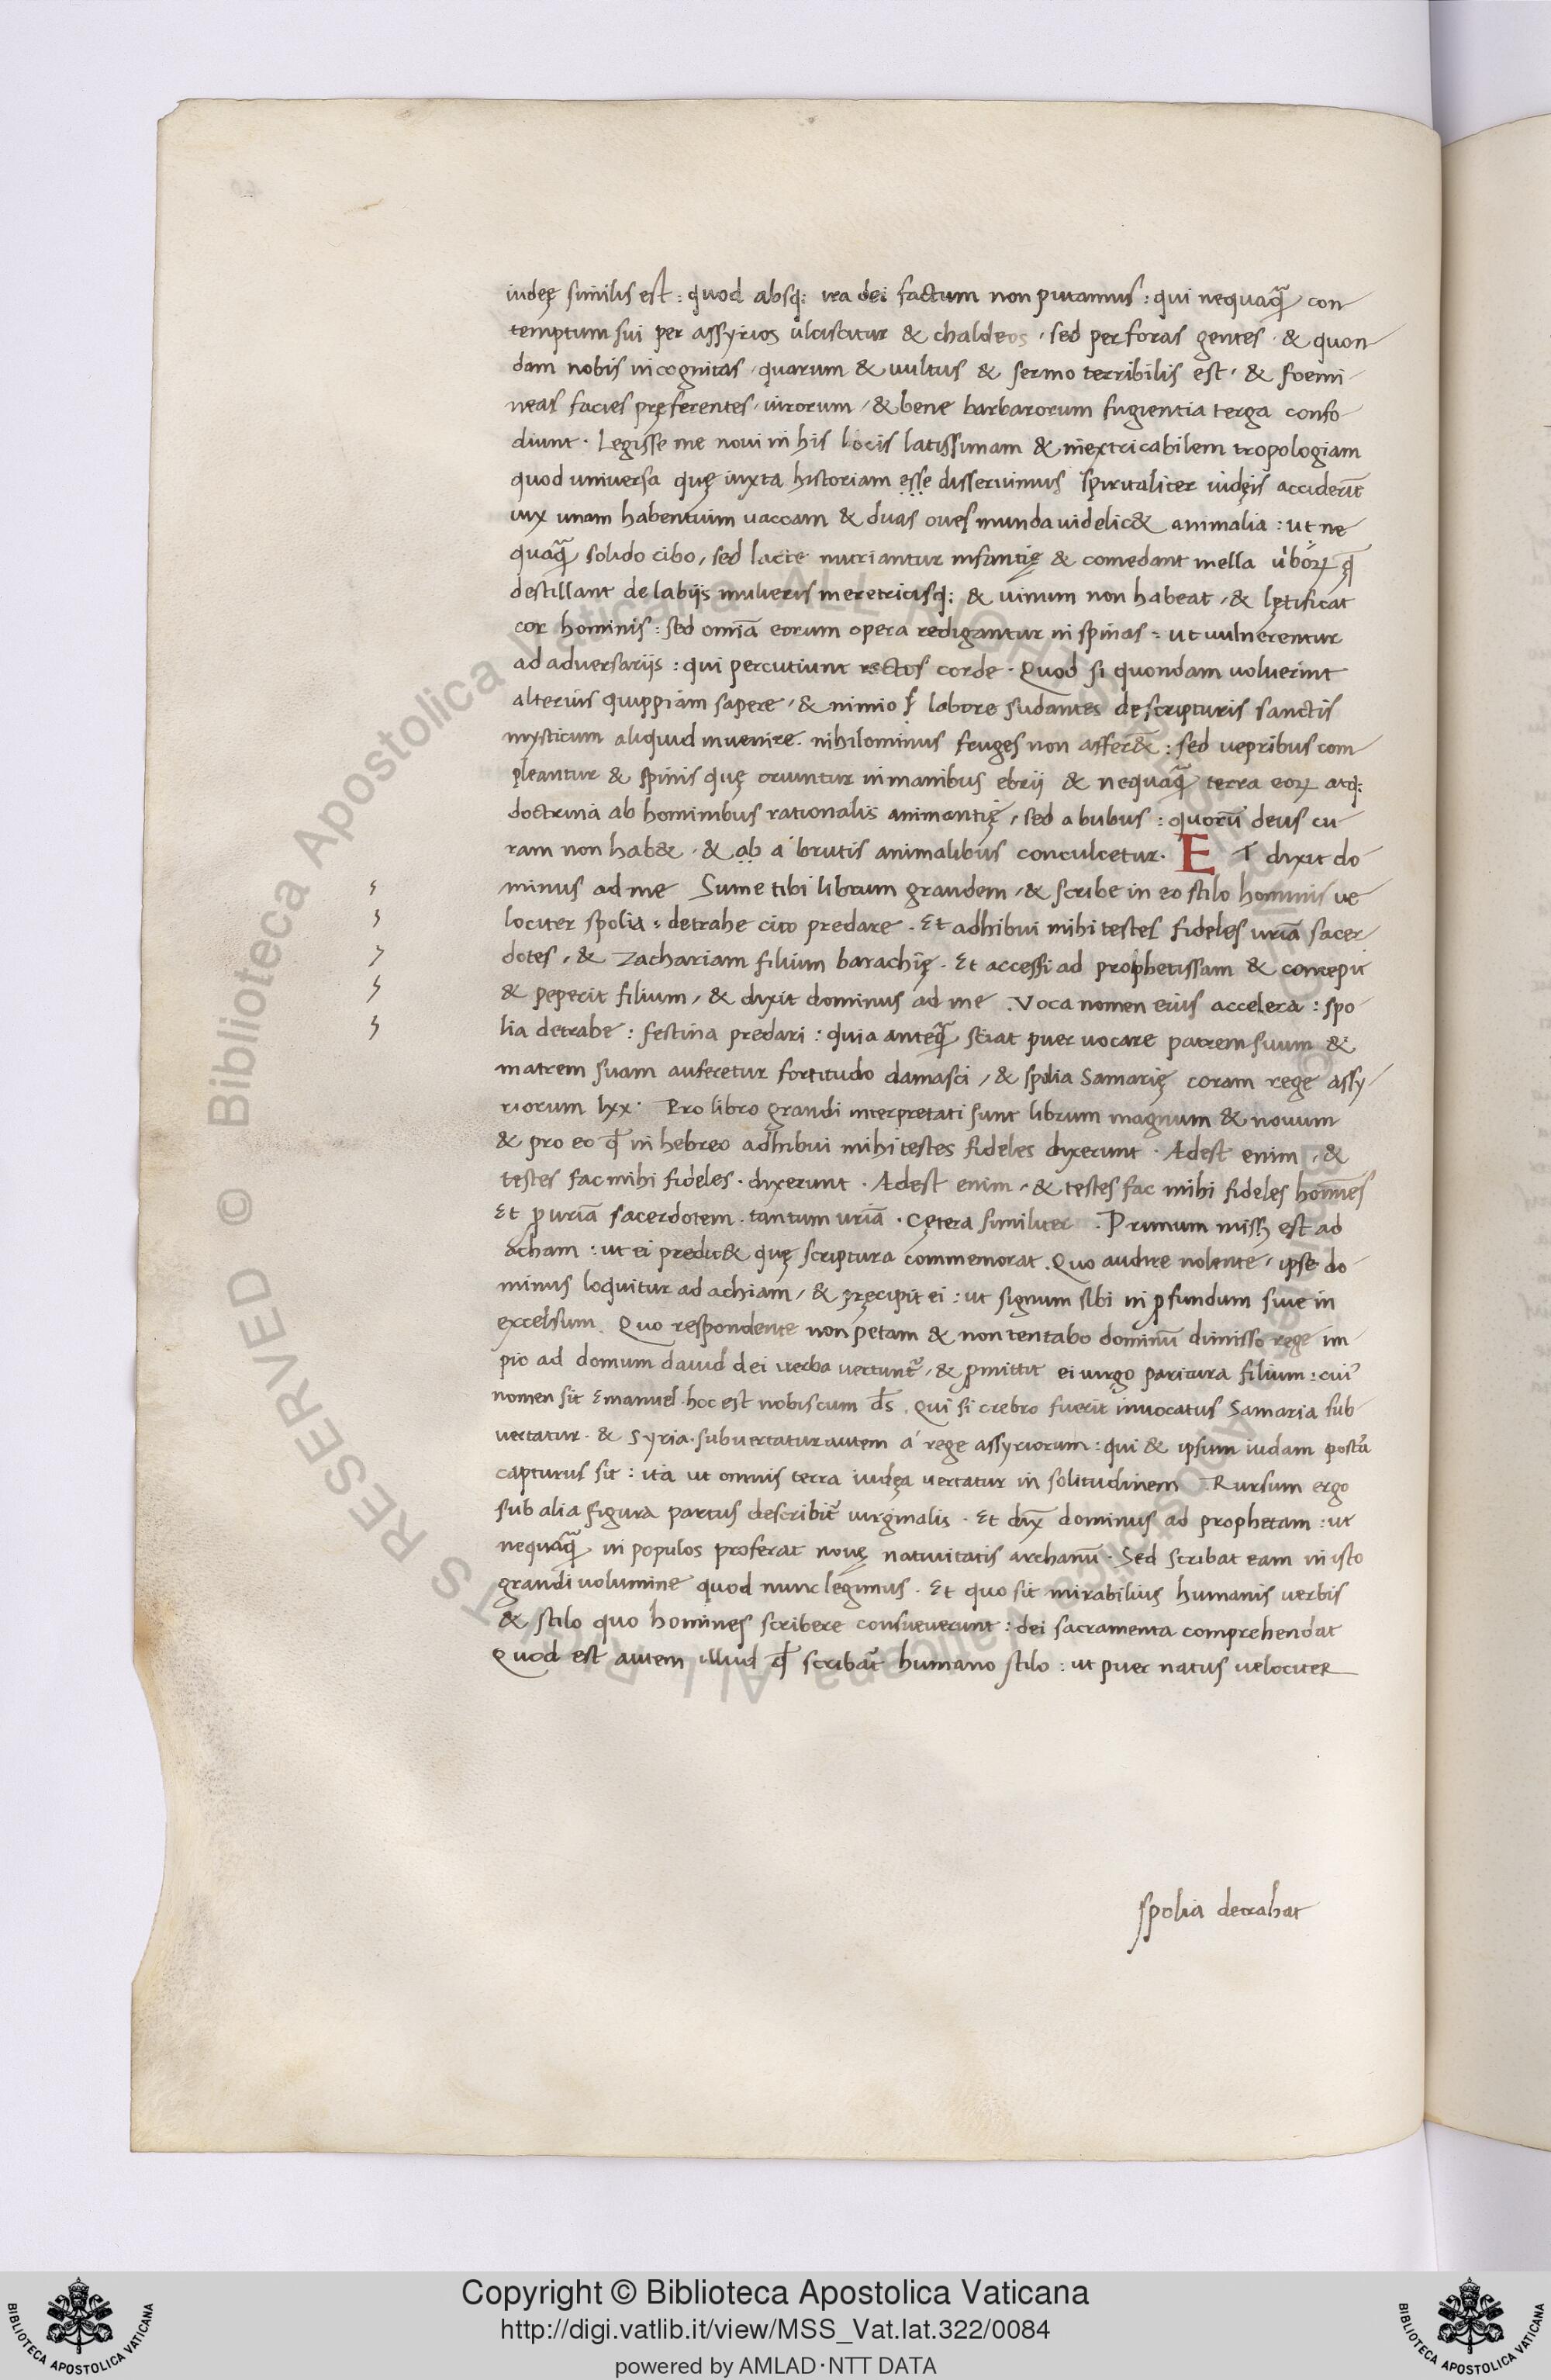 iudeę similis est : quod absq; ira dei factum non putamus : qui nequaq̃ con
temptum sui per assyrios ulciscitur & chaldeos · sed per foras gentes · & quon
dam nobis incognitas · quarum & uultus & sermo terribilis est · & foemi
neas facies pręferentes · uirorum · & bene barbarorum fugientia terga confo
diunt · Legisse me noui in his locis latissimam & inextricabilem tropologiam
quod universa quę iuxta historiam esse disseruimus spiritaliter iudęis acciderīt
uix unam habentium uaccam & duas oues munda uidelic& animalia : ut ne
quaq̃ solido cibo, sed lacte nutriantur infantię & comedant mella
destillant de labijs mulieris meretricisq; & uinum non habeat, & lętificat
cor hominis : sed omīa eorum opera redigantur in spinas : ut uulnerentur
ad adversarijs : qui percutiunt rectos corde · Quod si quondam voluerint
alterius quippiam sapere, & nimio labore sudantes de scripturis sanctis
mysticum aliquid invenire · nihilominus fruges non : sed uepribus com
pleantur & spinis quę oriuntur in manibus ebrij & nequaq̃ terra eoꝝ atq;
doctrina ab hominibus rationalis animantię, sed a bubus : quorū deus cu
ram non hab& · & ab a brutis animalibus conculcetur · ET dixit do
minus ad me Sume tibi librum grandem, & scribe in eo stilo hominis ue
lociter spolia : detrahe cito predare · Et adhibui mihi testes fideles uriā sacer
dotes, & Zachariam filium barachię · Et accessi ad prophetissam & concepit
& peperit filium, & dixit dominus ad me · Voca nomen eius accelera : spo
lia detrahe : festina predari : quia anteq̃ sciat puer uocare patrem suum &
matrem suam auferetur fortitudo damasci, & spolia Samarię coram rege assy
riorum lxx · Pro libro grandi interpretati sunt librum magnum & novum
& pro eo qđ in hebreo adhibui mihi testes fideles dixerunt · Adest enim, &
testes fac mihi fideles · dixerunt · Adest enim, & testes fac mihi fideles homīes
Et ꝓ uriā sacerdotem · tantum uriā · Cętera similiter · Primum est ad
acham : ut ei predic& quę scriptura commemorat · Quo audire nolente, ipse do
minus loquitur ad achiam, & pręcipit ei : ut signum sibi in ꝓfundum siue in
excelsum · Quo respondente non petam & non tentabo dominū dimisso rege im
pio ad domum dauid dei uerba uertunt᷑, & ꝓmittit ei uirgo paritura filium : cui᷒
nomen sit Emanuel · hoc est nobiscum ds̄ · Qui si crebro fuerit invocatus Samaria sub
uertatur · & Syria · subuertatur autem a rege assyriorum : qui & ipsum iudam posteā
capturus sit : ita ut omnis terra iudęa uertatur in solitudinem · Rursum ergo
sub alia figura partus describit᷑ uirginalis · Et dix̄ dominus ad prophetam : ut
nequaq̃ in populos proferat novę nativitatis archanū · Sed scribat eam in isto
grandi volumine quod nunc legimus · Et quo sit mirabilius humanis verbis
& stilo quo homines scribere consueverunt : dei sacramenta comprehendat
Quod est autem illud qđ scribat᷑ humano stilo : ut puer natus velociter
spolia detrahat
Copyright © Biblioteca Apostolica Vaticana
http://digi.vatlib.it/view/MSS_Vat.lat.322/0084
powered by AMLAD·NTT DATA